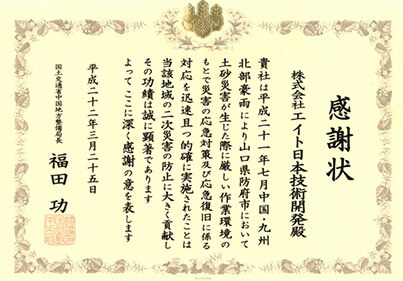 感謝状
株式会社エイト日本技術開発殿
貴社は平成二十一年七月中国・九州
北部豪雨により山口県防府市において
土砂災害が生じた際に厳しい作業環境の
もとで災害の応急対策及び応急復旧に係る
対応を迅速且つ的確に実施されたことは
当該地域の二次災害の防止に大きく貢献し
その功績は誠に顕著であります
よってここに深く感謝の意を表します
平成二十二年三月二十五日
国土交通省中国地方整備局長
福田 功